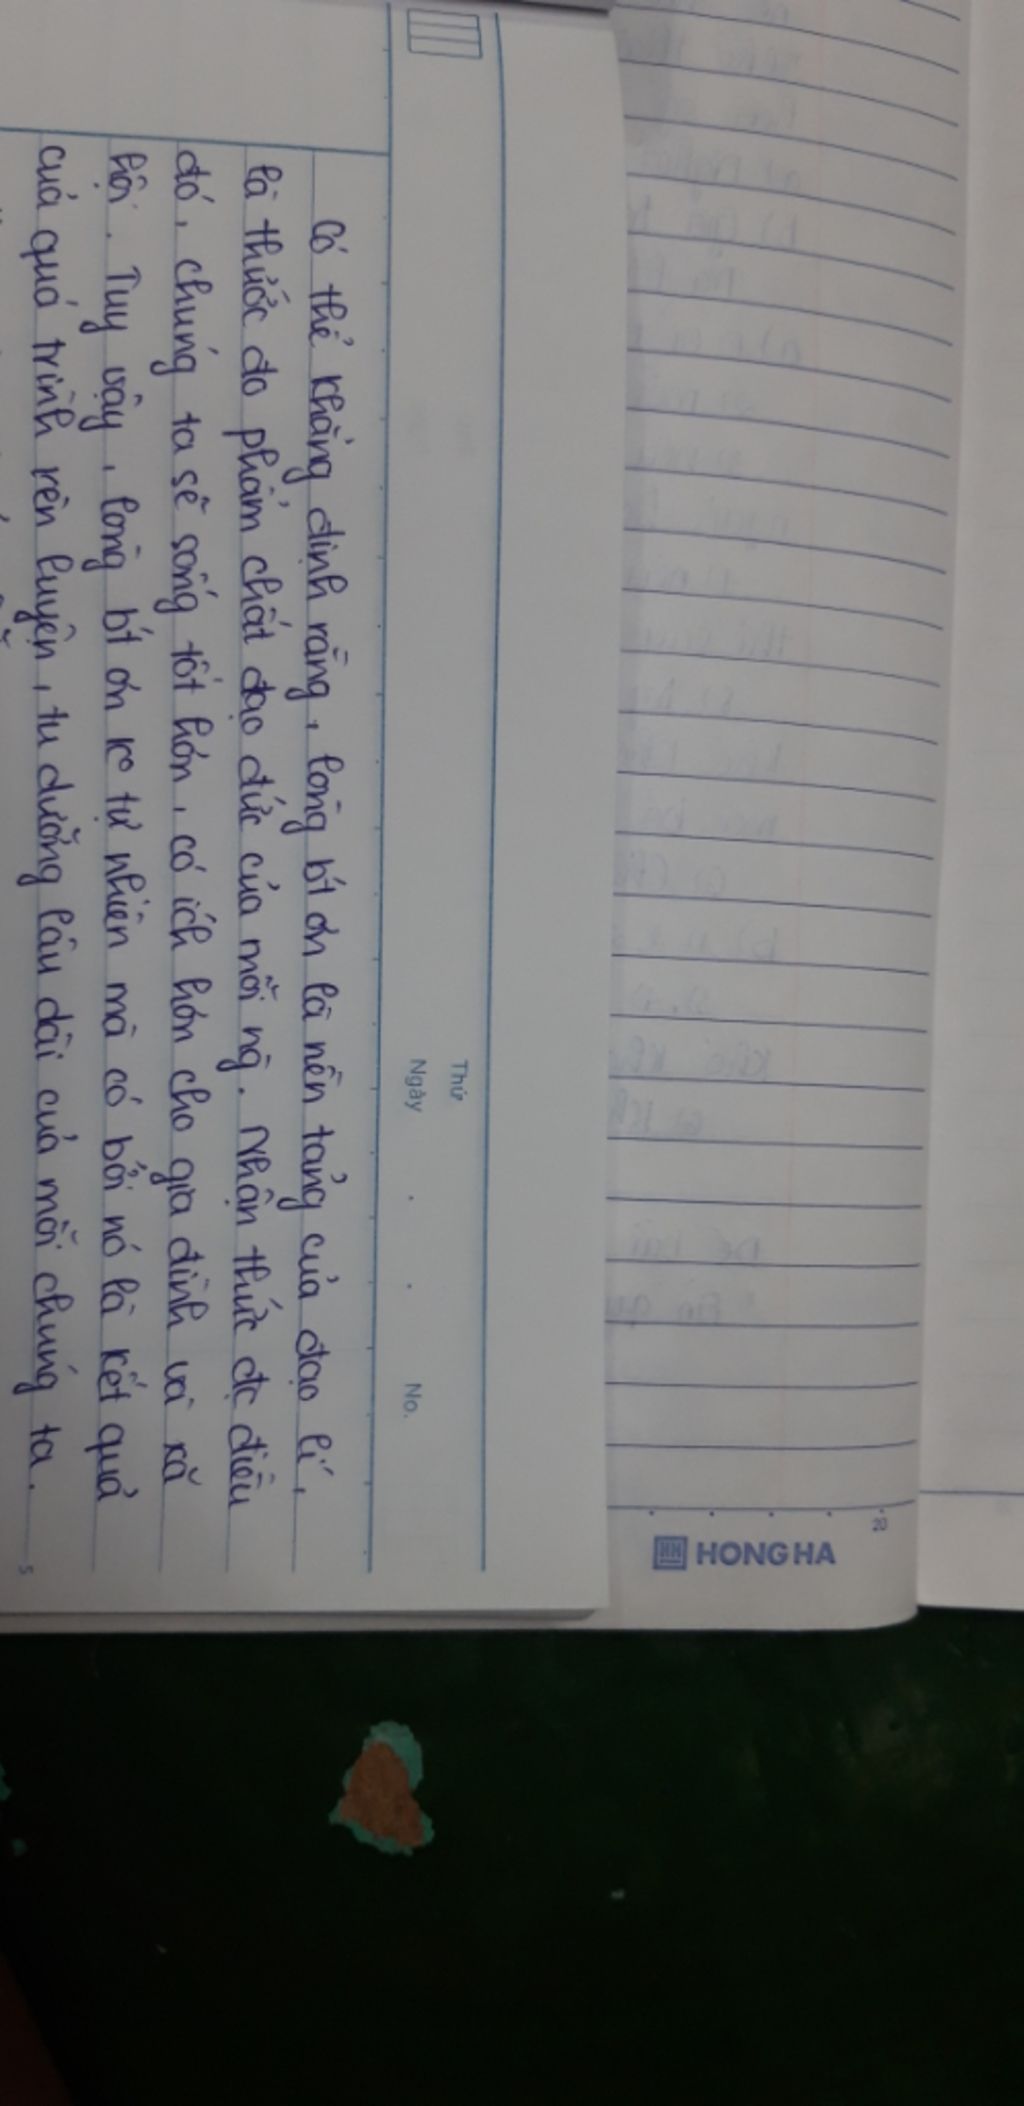 Thứ
Ngày . . No.
Có thể khẳng định rằng, lòng bt ơn là nền tảng của đạo lí,
là thước đo phẩm chất đạo đức của mỗi ng. Nhận thức đc điều
đó, chúng ta sẽ sống tốt hơn, có ích hơn cho gia đình và xã
hội. Tuy vậy, lòng bt ơn ko tự nhiên mà có bởi nó là kết quả
của quá trình rèn luyện, tu dưỡng lâu dài của mỗi chúng ta.
5
20
HH HONG HA